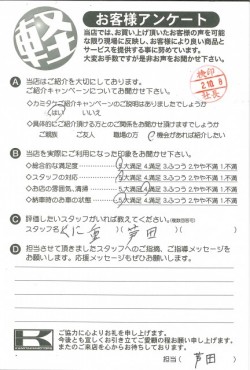 軽
お客様アンケート
当店では、お買い上げ頂いたお客様の声を可能
な限り現場に反映し、お客様により良い商品と
サービスを提供する事に努めています。
大変お手数ですが是非お声をお聞かせ下さい。
A 当店はご紹介を大切にしております。
ご紹介キャンペーンについてお聞かせ下さい。
◇カミタケご紹介キャンペーンのご説明はありましたでしょうか
はい いいえ
◇具体的にご紹介頂ける方とのご関係をお聞かせ頂けますでしょうか
ご親族 ご友人 職場の方 機会があれば紹介したい
B 当店を実際にご利用になった印象をお聞かせ下さい。
◇総合的な満足度 5.大満足 4.満足 3.ふつう 2.やや不満 1.不満
◇スタッフの対応 5.大満足 4.満足 3.ふつう 2.やや不満 1.不満
◇お店の雰囲気,清掃 5.大満足 4.満足 3.ふつう 2.やや不満 1.不満
◇納車時のお車の状態 5.大満足 4.満足 3.ふつう 2.やや不満 1.不満
C 評価したいスタッフがいれば教えてください。(複数回答可)
スタッフ名( )( 芦田 )( )
D 担当させて頂きましたスタッフへのご指摘、ご指導メッセージを
お願いします。応援メッセージもぜひお願いします。
K
ご協力に心よりお礼を申し上げます。
今後とも宜しくお引き立てご愛顧の程お願い申し上げます。
またのご来店を心からお待ちしております。
担当( 芦田 )